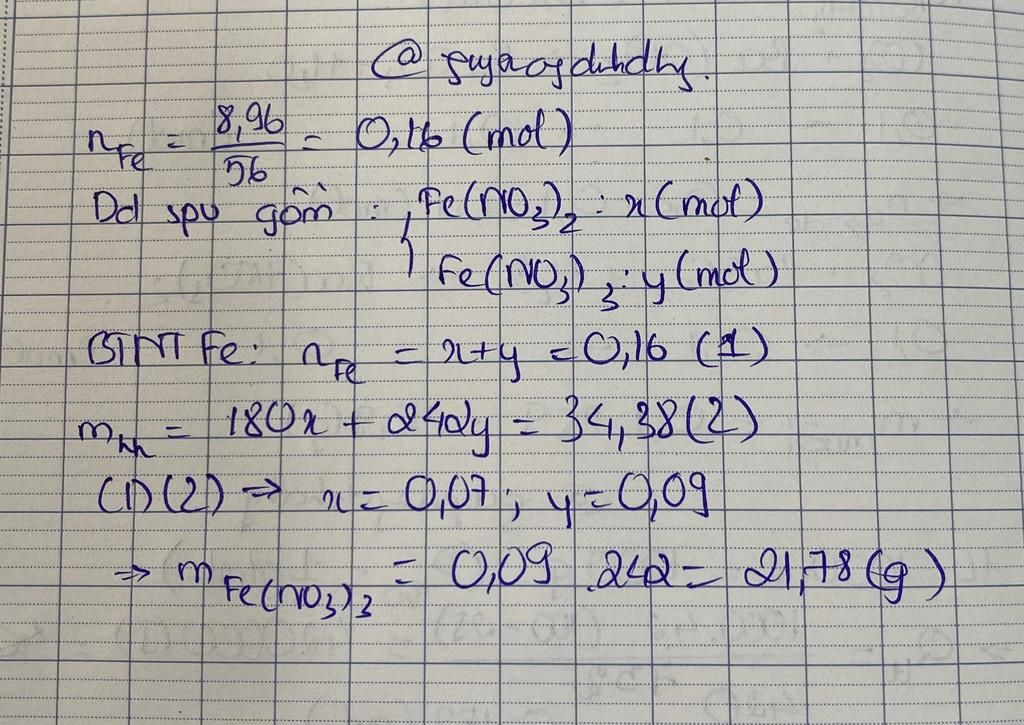 n_Fe = 8,96/56 = 0,16 (mol)
Dd spư gồm : { Fe(NO3)2 : x (mol)
Fe(NO3)3 : y (mol)
BTNT Fe: n_Fe = x+y = 0,16 (1)
m_hh = 180x + 242y = 34,38 (2)
(1)(2) => x = 0,07 ; y = 0,09
=> m_Fe(NO3)3 = 0,09 . 242 = 21,78 (g)